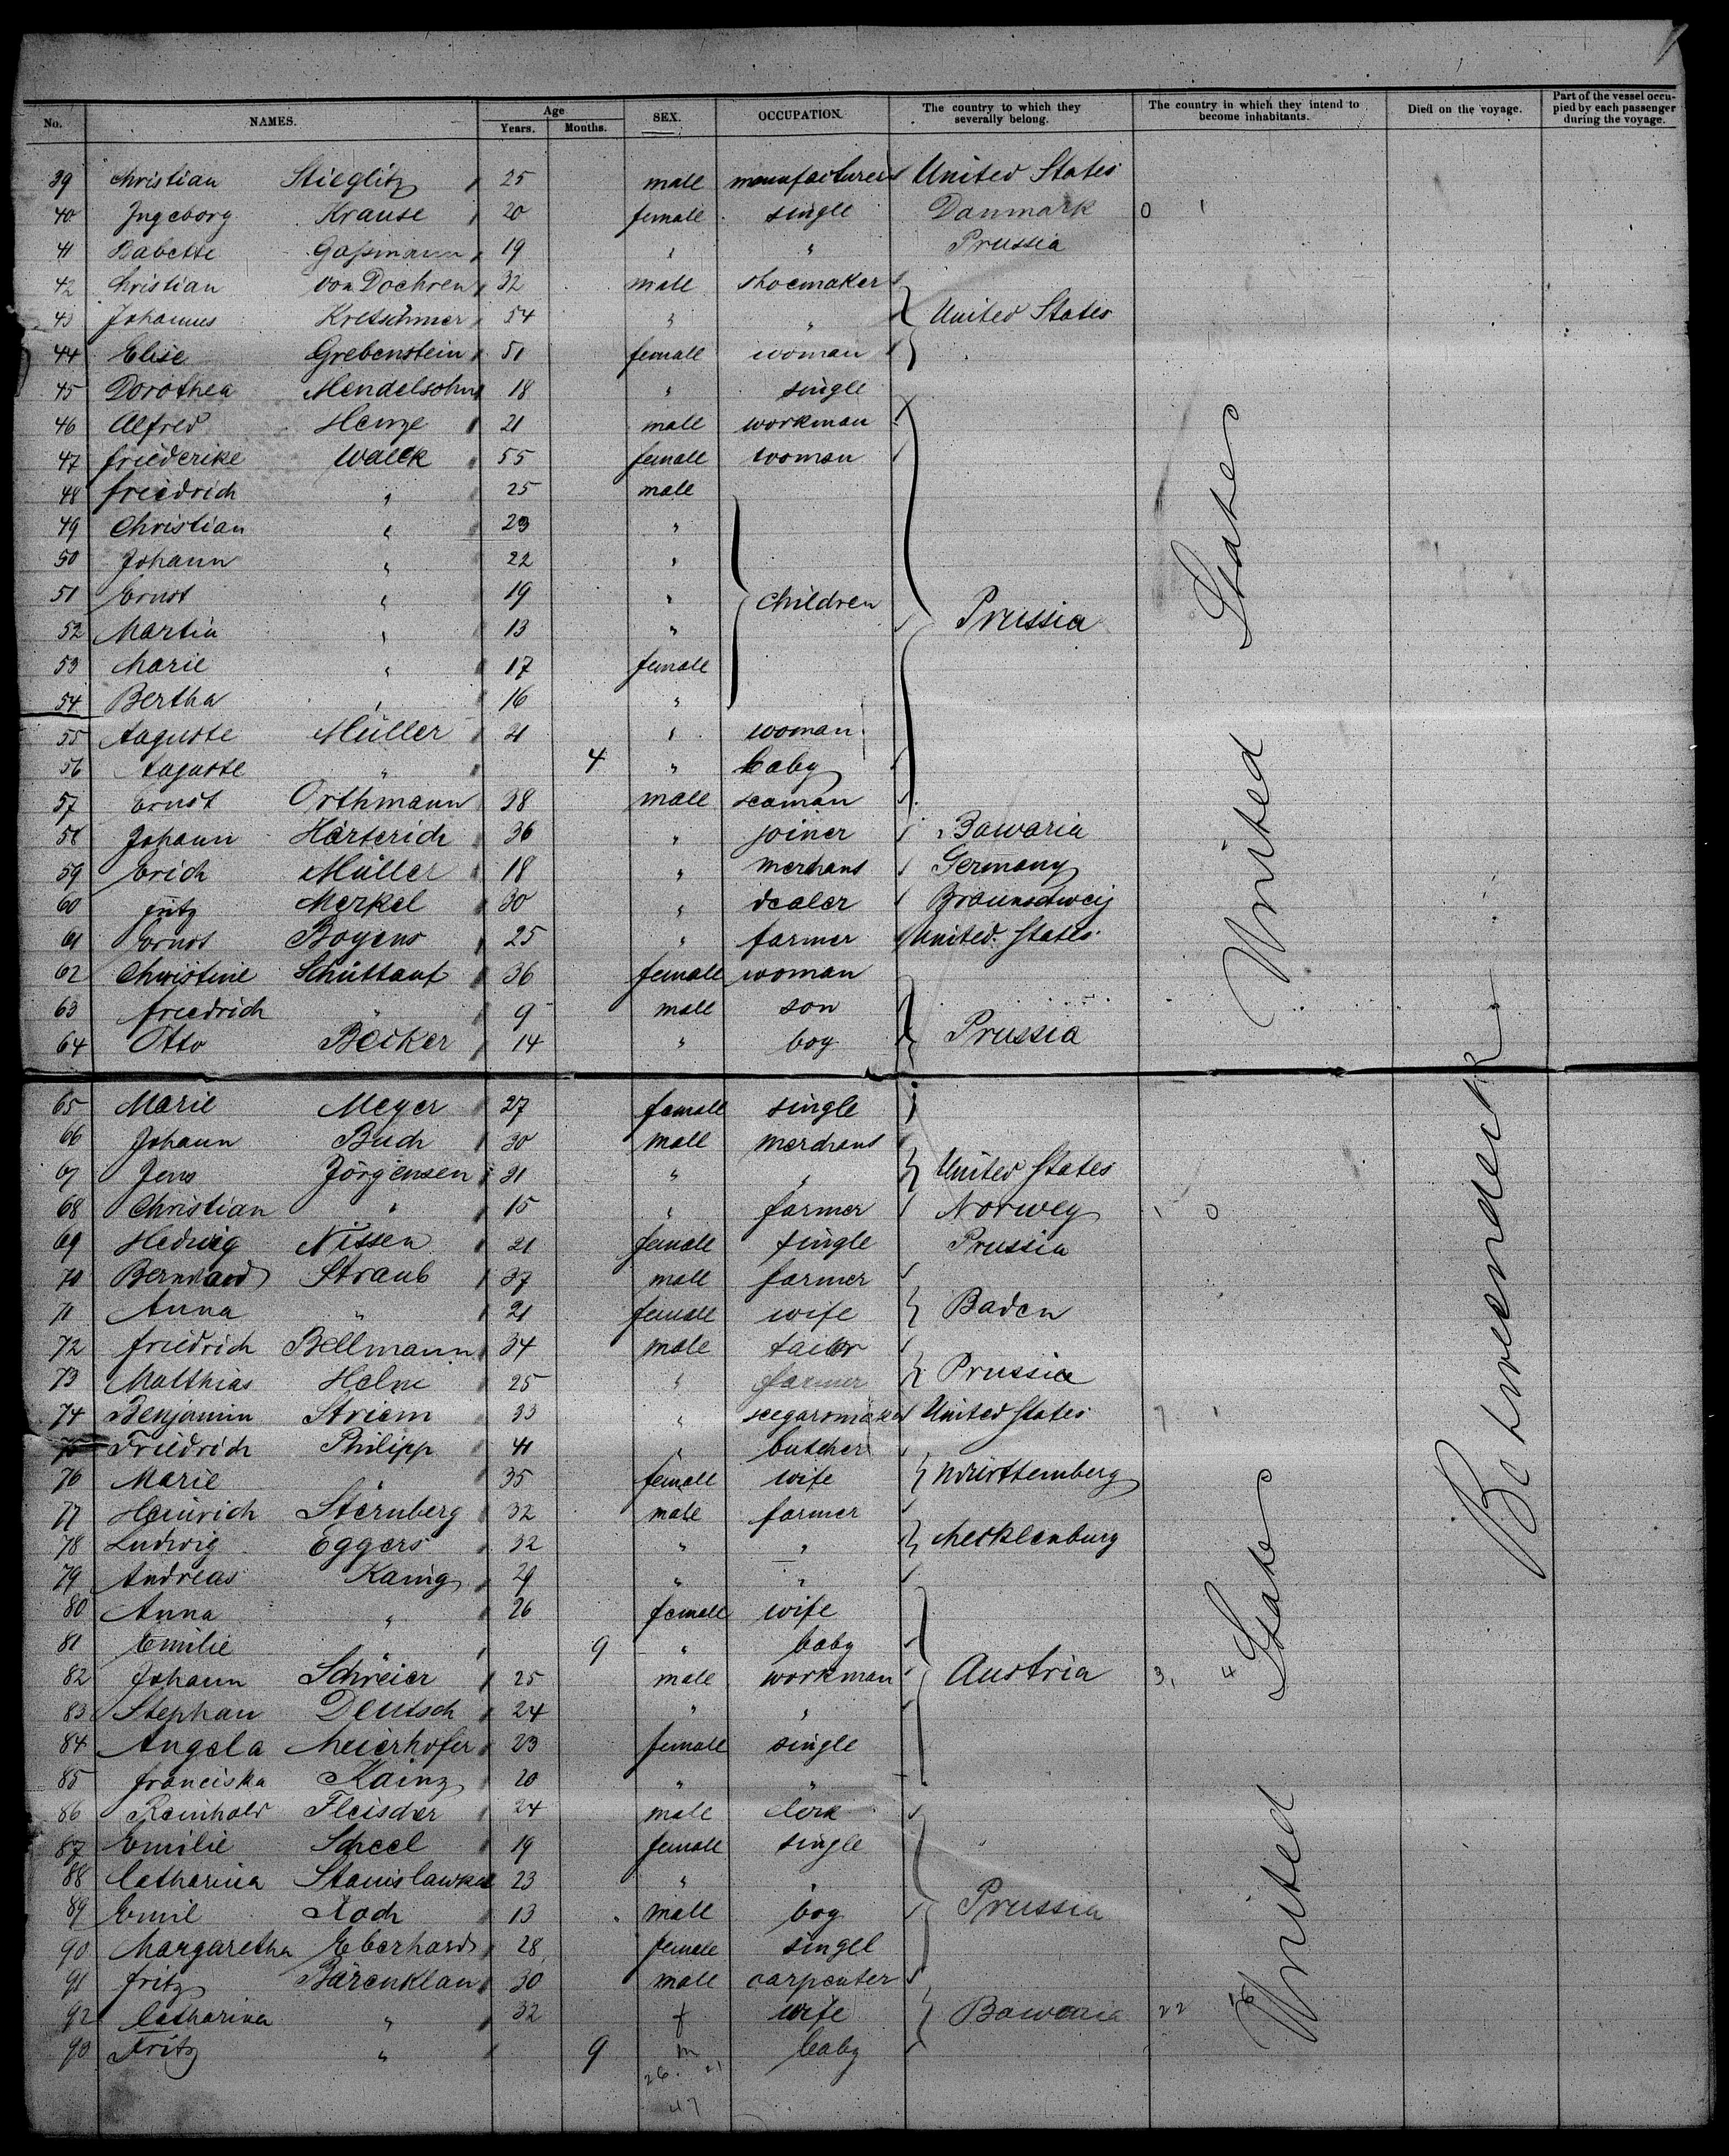 No. NAMES. Age Years. Months. SEX. OCCUPATION. The country to which they severally belong. The country in which they intend to become inhabitants. Died on the voyage. Part of the vessel occupied by each passenger during the voyage.
39 Christian Stieglitz 25 male manufacturer United States
40 Ingeborg Krause 20 female single Danmark 0 1
41 Babette Gaßmann 19 " " Prussia
42 Christian von Dochren 32 male shoemaker
43 Johannes Kretschmer 54 " " United States
44 Elise Grebenstein 51 female woman
45 Dorothea Mendelsohn 18 " single
46 Alfred Henze 21 male workman
47 friederike Walck 55 female woman
48 friedrich " 25 male
49 Christian " 23 "
50 Johann " 22 "
51 Ernst " 19 " children Prussia
52 Martin " 13 "
53 Marie " 17 female
54 Bertha " 16 "
55 Auguste Müller 21 " woman
56 Auguste " 4 " baby
57 Ernst Orthmann 38 male seaman
58 Johann Härterich 36 " joiner Bawaria
59 Erich Müller 18 " merchant Germany
60 fritz Merkel 30 " dealer Braunschweig
61 Ernst Boyens 25 " farmer United States
62 Christine Schüttauf 36 female woman
63 friedrich " 9 male son
64 Otto Becker 14 " boy Prussia
65 Marie Meyer 27 female single
66 Johann Buch 30 male merchant
67 Jens Jörgensen 21 " " United States
68 Christian " 15 " farmer Norwey 1 0
69 Hedwig Nissen 21 female single Prussia
70 Bernhard Straub 37 male farmer
71 Anna " 21 female wife Baden
72 friedrich Bellmann 34 male tailor
73 Matthias Helm 25 " farmer Prussia
74 Benjamin Striem 33 " seegarmaker United States
75 Friedrich Philipp 41 " butcher
76 Marie " 35 female wife Württemberg
77 Heinrich Sternberg 32 male farmer
78 Ludwig Eggers 32 " " Mecklenburg
79 Andreas Kainz 29 " "
80 Anna " 26 female wife
81 Emilie " 9 " baby
82 Johann Schreier 25 male workman Austria 3 4
83 Stephan Deutsch 24 " "
84 Angela Meierhofer 23 female single
85 franciska Kainz 20 " "
86 Reinhold Fleischer 24 male clerk
87 Emilie Scheel 19 female single
88 Catharina 23 " "
89 Emil Koch 13 male boy Prussia
90 Margaretha Eberhard 28 female singel
91 fritz Bärenklau 30 male carpenter
92 Catharina " 32 f wife Bawaria 22 16
93 Fritz " 9 m baby
26. 21
47
United States
United States